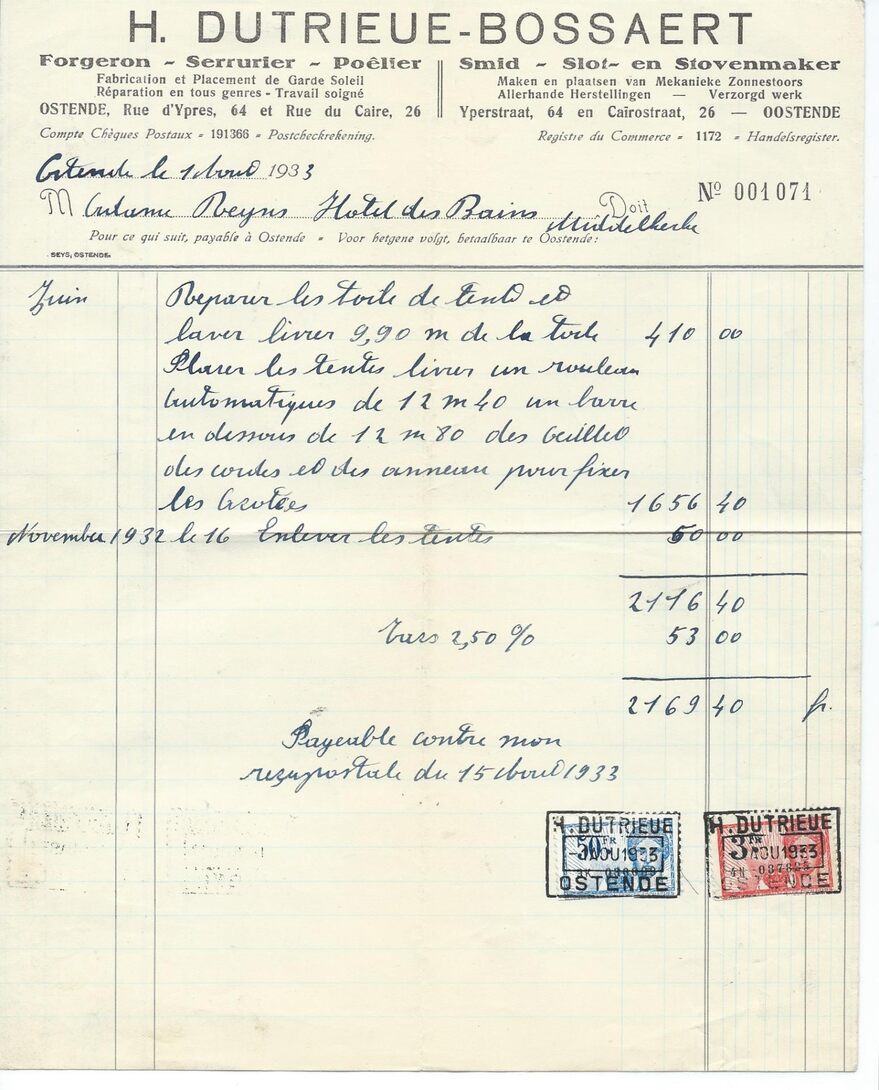 H. DUTRIEUE-BOSSAERT
Forgeron - Serrurier - Poêlier
Fabrication et Placement de Garde Soleil
Réparation en tous genres - Travail soigné
OSTENDE, Rue d'Ypres, 64 et Rue du Caire, 26
Smid - Slot- en Stovenmaker
Maken en plaatsen van Mekanieke Zonnestoors
Allerhande Herstellingen — Verzorgd werk
Yperstraat, 64 en Caïrostraat, 26 — OOSTENDE
Compte Chèques Postaux - 191366 - Postcheckrekening.
Registre du Commerce - 1172 - Handelsregister.
Ostende le 1 Aout 1933
Nº 001071
Madame Reyns Hotel des Bains Doit
Middelkerke
Pour ce qui suit, payable à Ostende - Voor hetgene volgt, betaalbaar te Oostende:
SEYS, OSTENDE.
Juin Reparer les toile de tent et
laver livrer 9,90 m de la toile 410 00
Placer les tentes livrer un rouleau
automatiques de 12 m 40 un barre
en dessous de 12 m 80 des oeillet
des cordes et des anneau pour fixer
les 1656 40
November 1932 le 16 Enlever les tentes 50 00
2116 40
Taxs 2,50 % 53 00
2169 40 fr.
Payeable contre mon
reçu postale du 15 Aout 1933
H. DUTRIEUE
50 FR
AOU 1933
OSTENDE
H. DUTRIEUE
3 FR
AOU 1933
OSTENDE